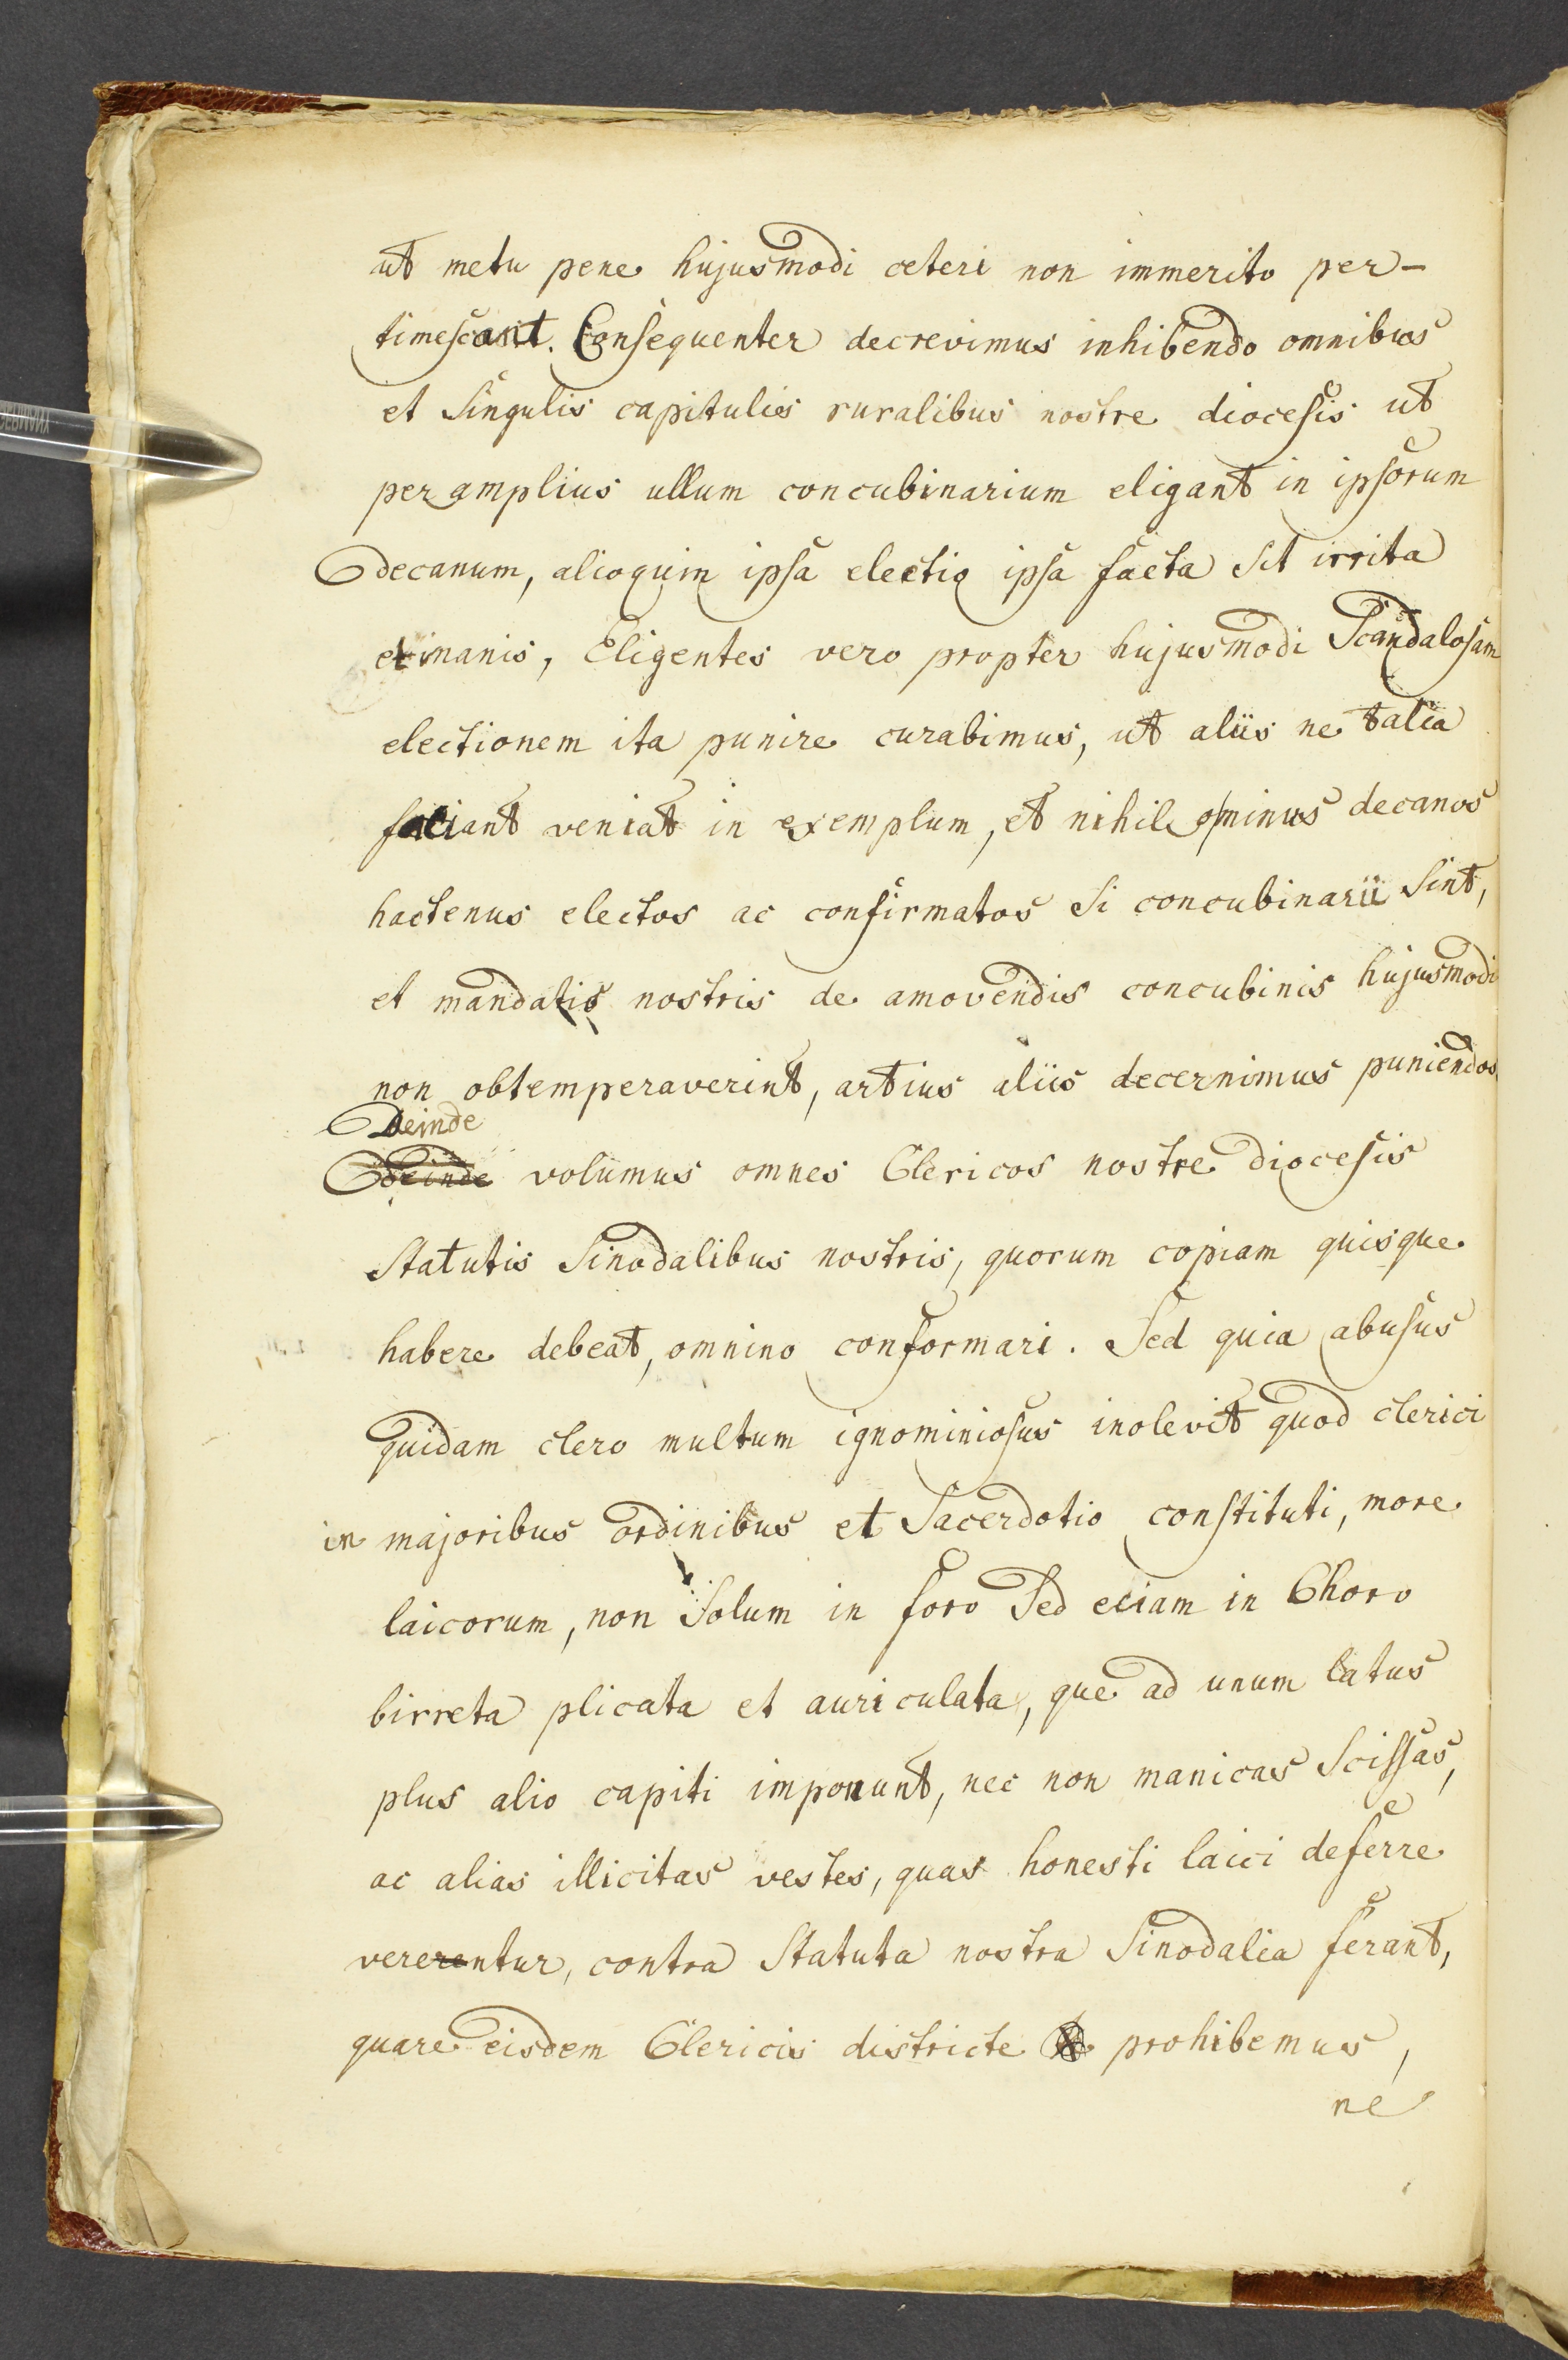 ut metu pene hujusmodi ceteri non immerito per-
timescant. Consequenter decrevimus inhibendo omnibus
et singulis capitulis ruralibus nostre diocesis ut
per amplius ullum concubinarium eligant in ipsorum
decanum, alioquin ipsa electio ipsa facta sit irrita
et inanis, Eligentes vero propter hujusmodi Scandalosam
electionem ita punire curabimus, ut aliis ne talia
faciant veniat in exemplum, et nihil ominus decanos
hactenus electos ac confirmatos si concubinarii sint,
et mandatis nostris de amovendis concubinis hujusmodi
non obtemperaverint, artius aliis decernimus puniendos
Deinde
Deinde volumus omnes Clericos nostre diocesis
Statutis Sinodalibus nostris, quorum copiam quisque
habere debeat, omnino conformari. Sed quia abusus
quidam clero multum ignominiosus inolevit quod clerici
in majoribus ordinibus et Sacerdotio constituti, more
laicorum, non solum in foro Sed eciam in Choro
birreta plicata et auriculata, que ad unum latus
plus alio capiti imponunt, nec non manicas Scissas,
ac alias illicitas vestes, quas honesti laici deferre
vererentur, contra Statuta nostra Sinodalia ferant,
quare eisdem Clericis districte prohibemus,
ne